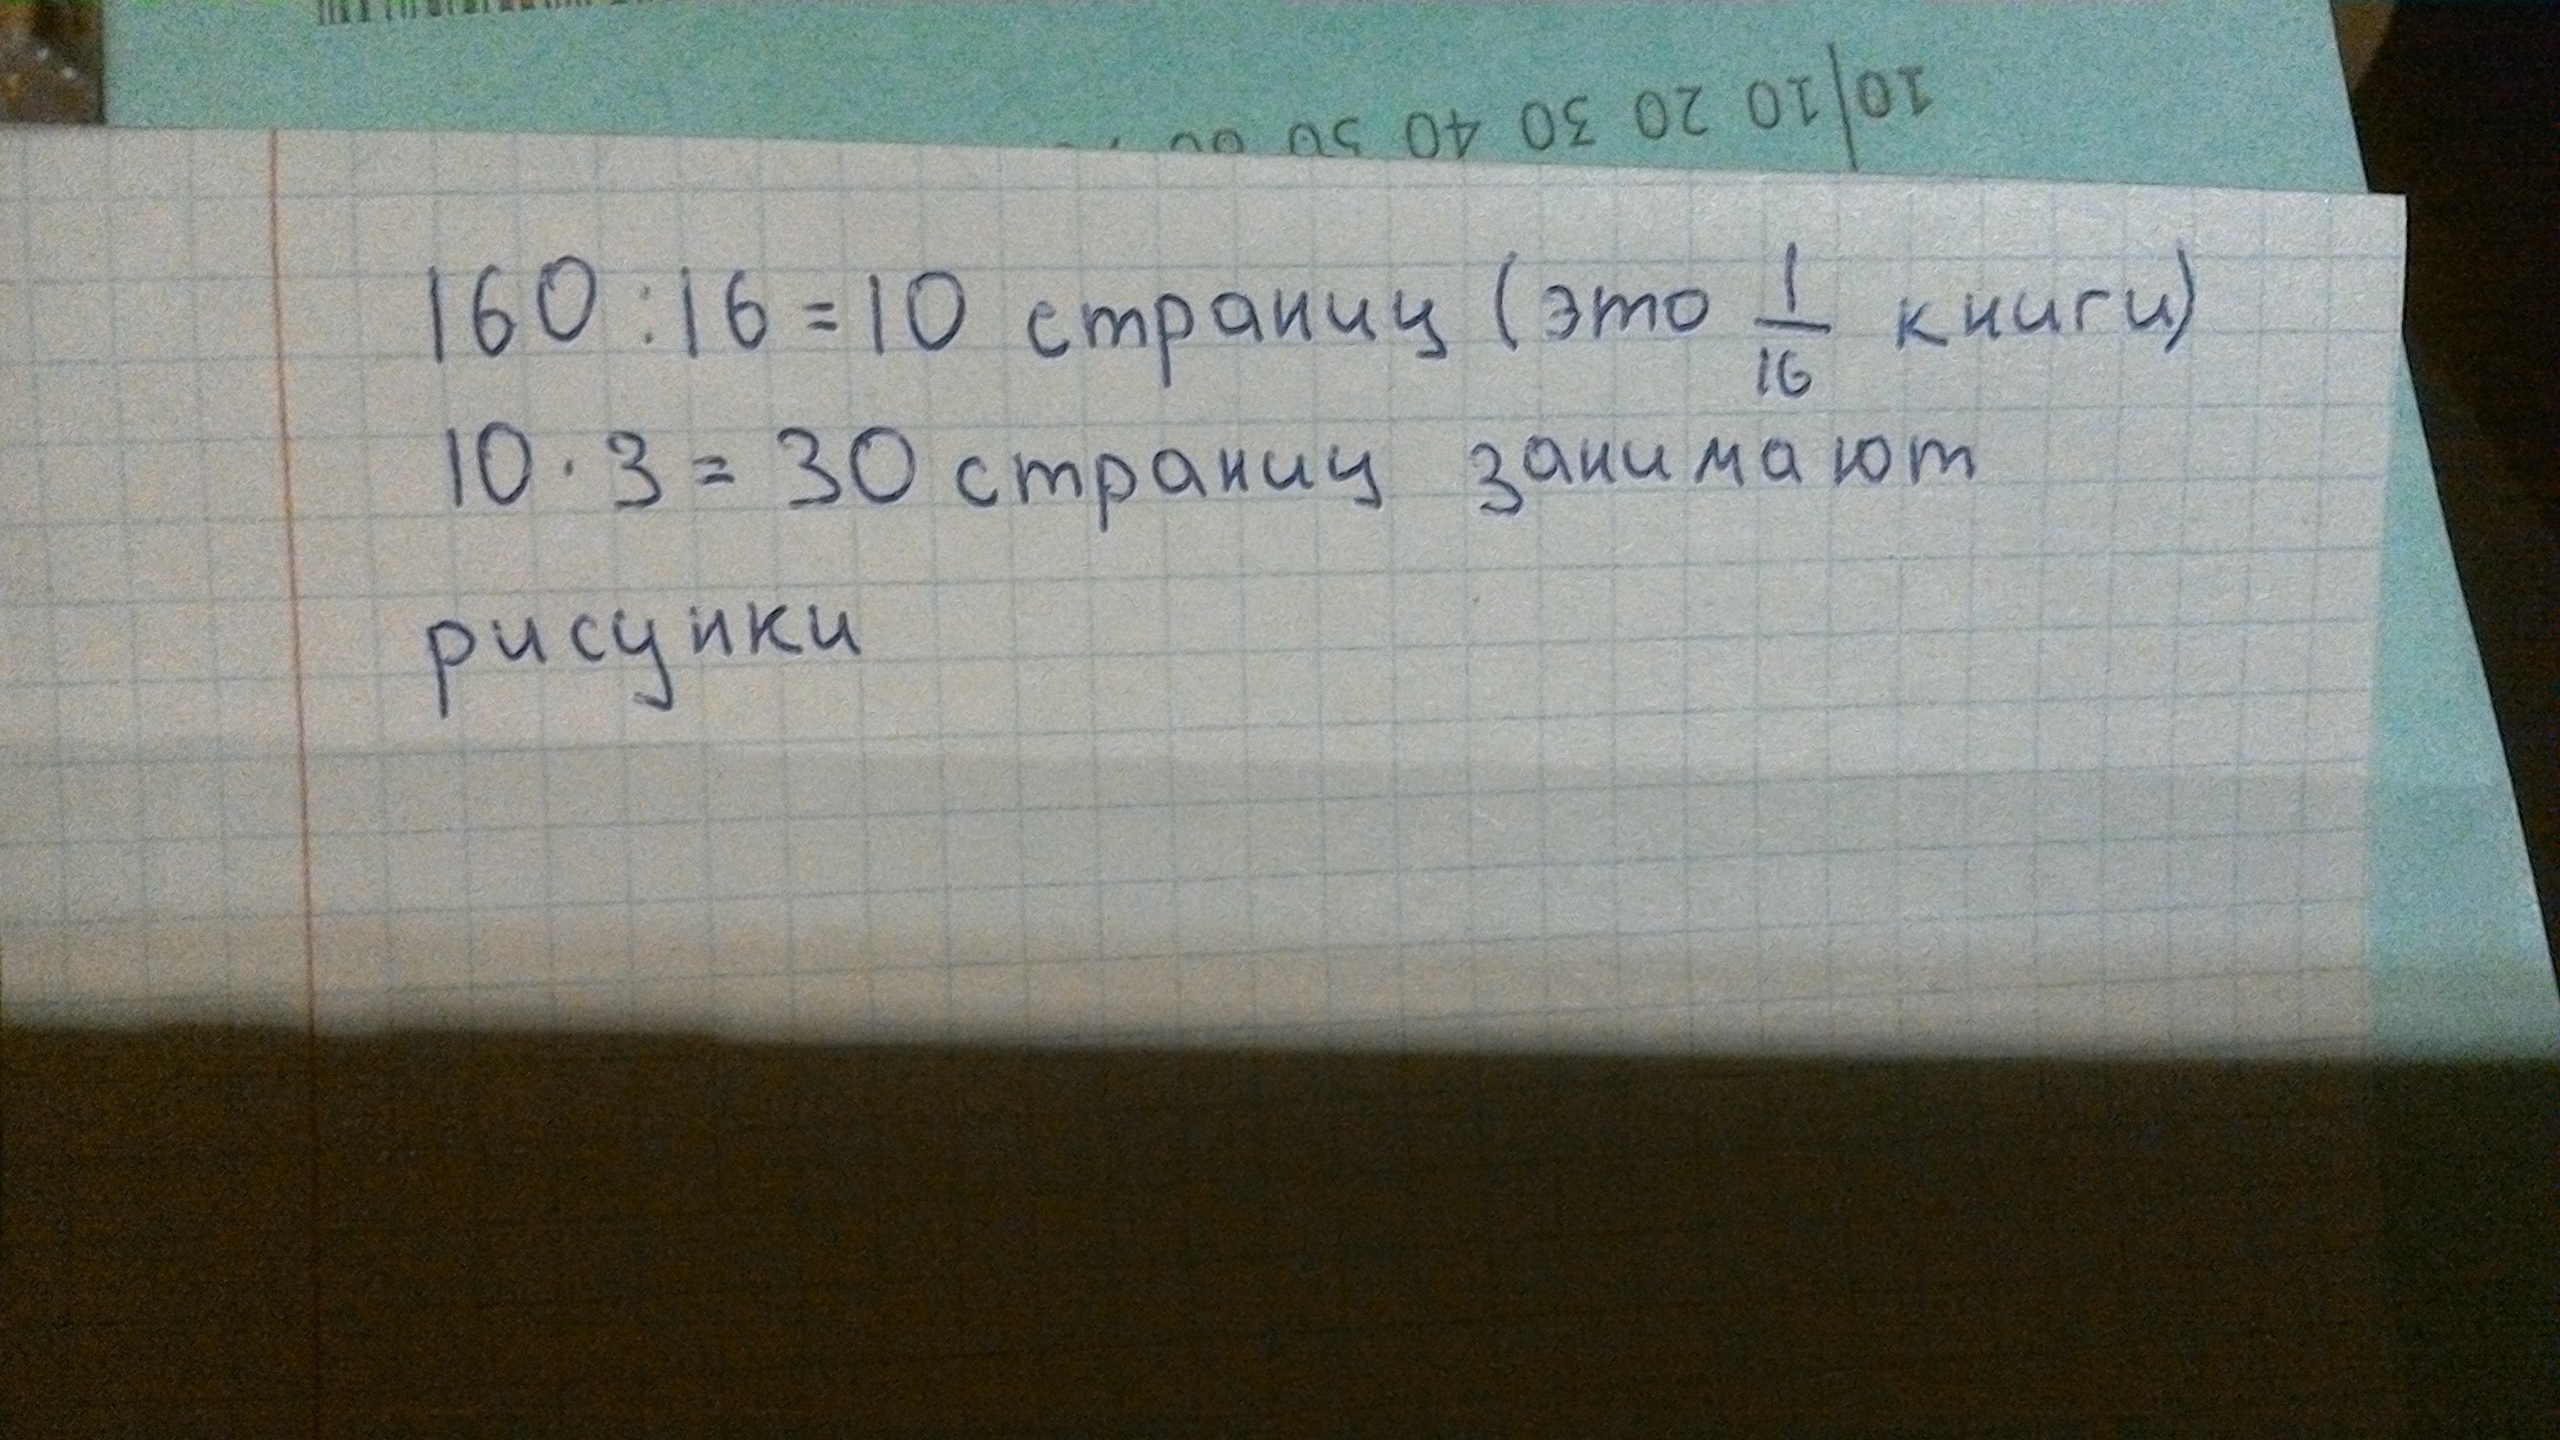 10|10 20 30 40 50
160:16=10 страниц (это 1/16 книги)
10·3=30 страниц занимают
рисунки